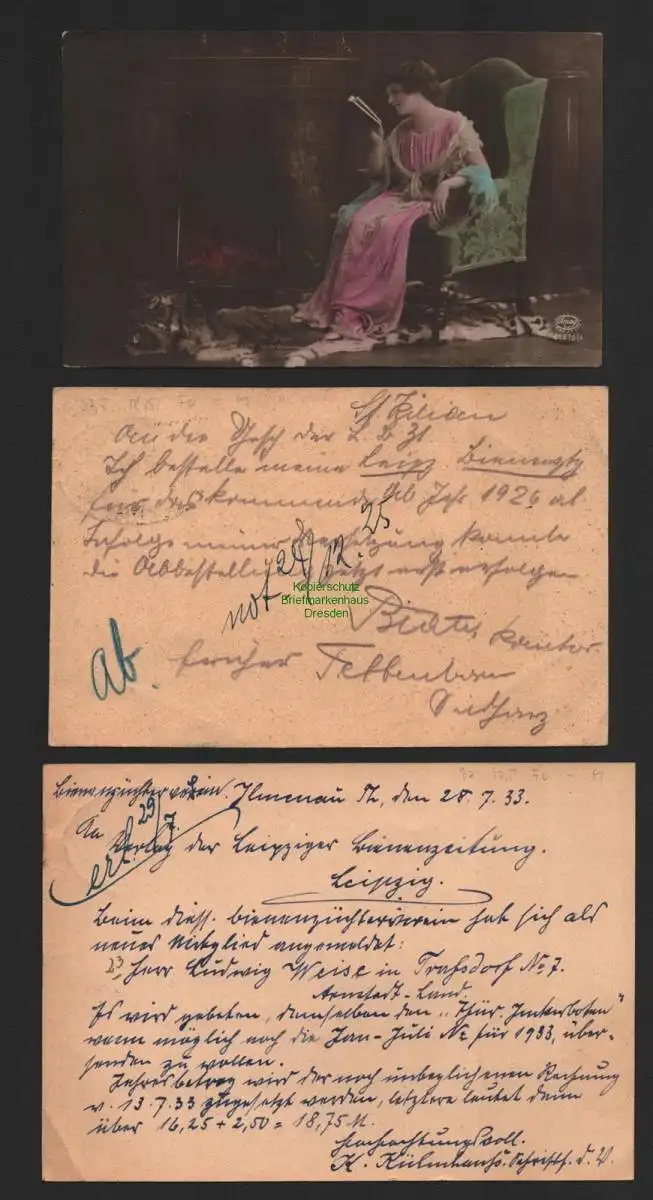 St. Kilian
An die Gesch der L. B. Zt
Ich bestelle meine Leipz. Bienenztg
für das kommende Jahr 1926 ab.
Infolge meiner Versetzung konnte
die Abbestellung jetzt erst erfolgen
not. 24/12. 25
Kopierschutz
Briefmarkenhaus
Dresden
Kantor
ab.
früher Tettenborn
Südharz
Bienenzüchterverein. Ilmenau Th., den 28.7.33.
erl. 29/7.
An Verlag der Leipziger Bienenzeitung.
Leipzig.
Beim dies. Bienenzüchterverein hat sich als
neues Mitglied angemeldet:
Herr Ludwig Weise in Traßdorf No 7.
Arnstadt-Land.
Es wird gebeten, demselben den "Thür. Imkerboten"
wenn möglich noch die Jan-Juli No für 1933, über-
senden zu wollen.
Jahresbetrag wird der noch unbeglichenen Rechnung
v. 13.7.33 zugesetzt werden, letztere lautet dann
über 16,25 + 2,50 = 18,75 M.
Hochachtungsvoll.
K. Schriftf. d. V.